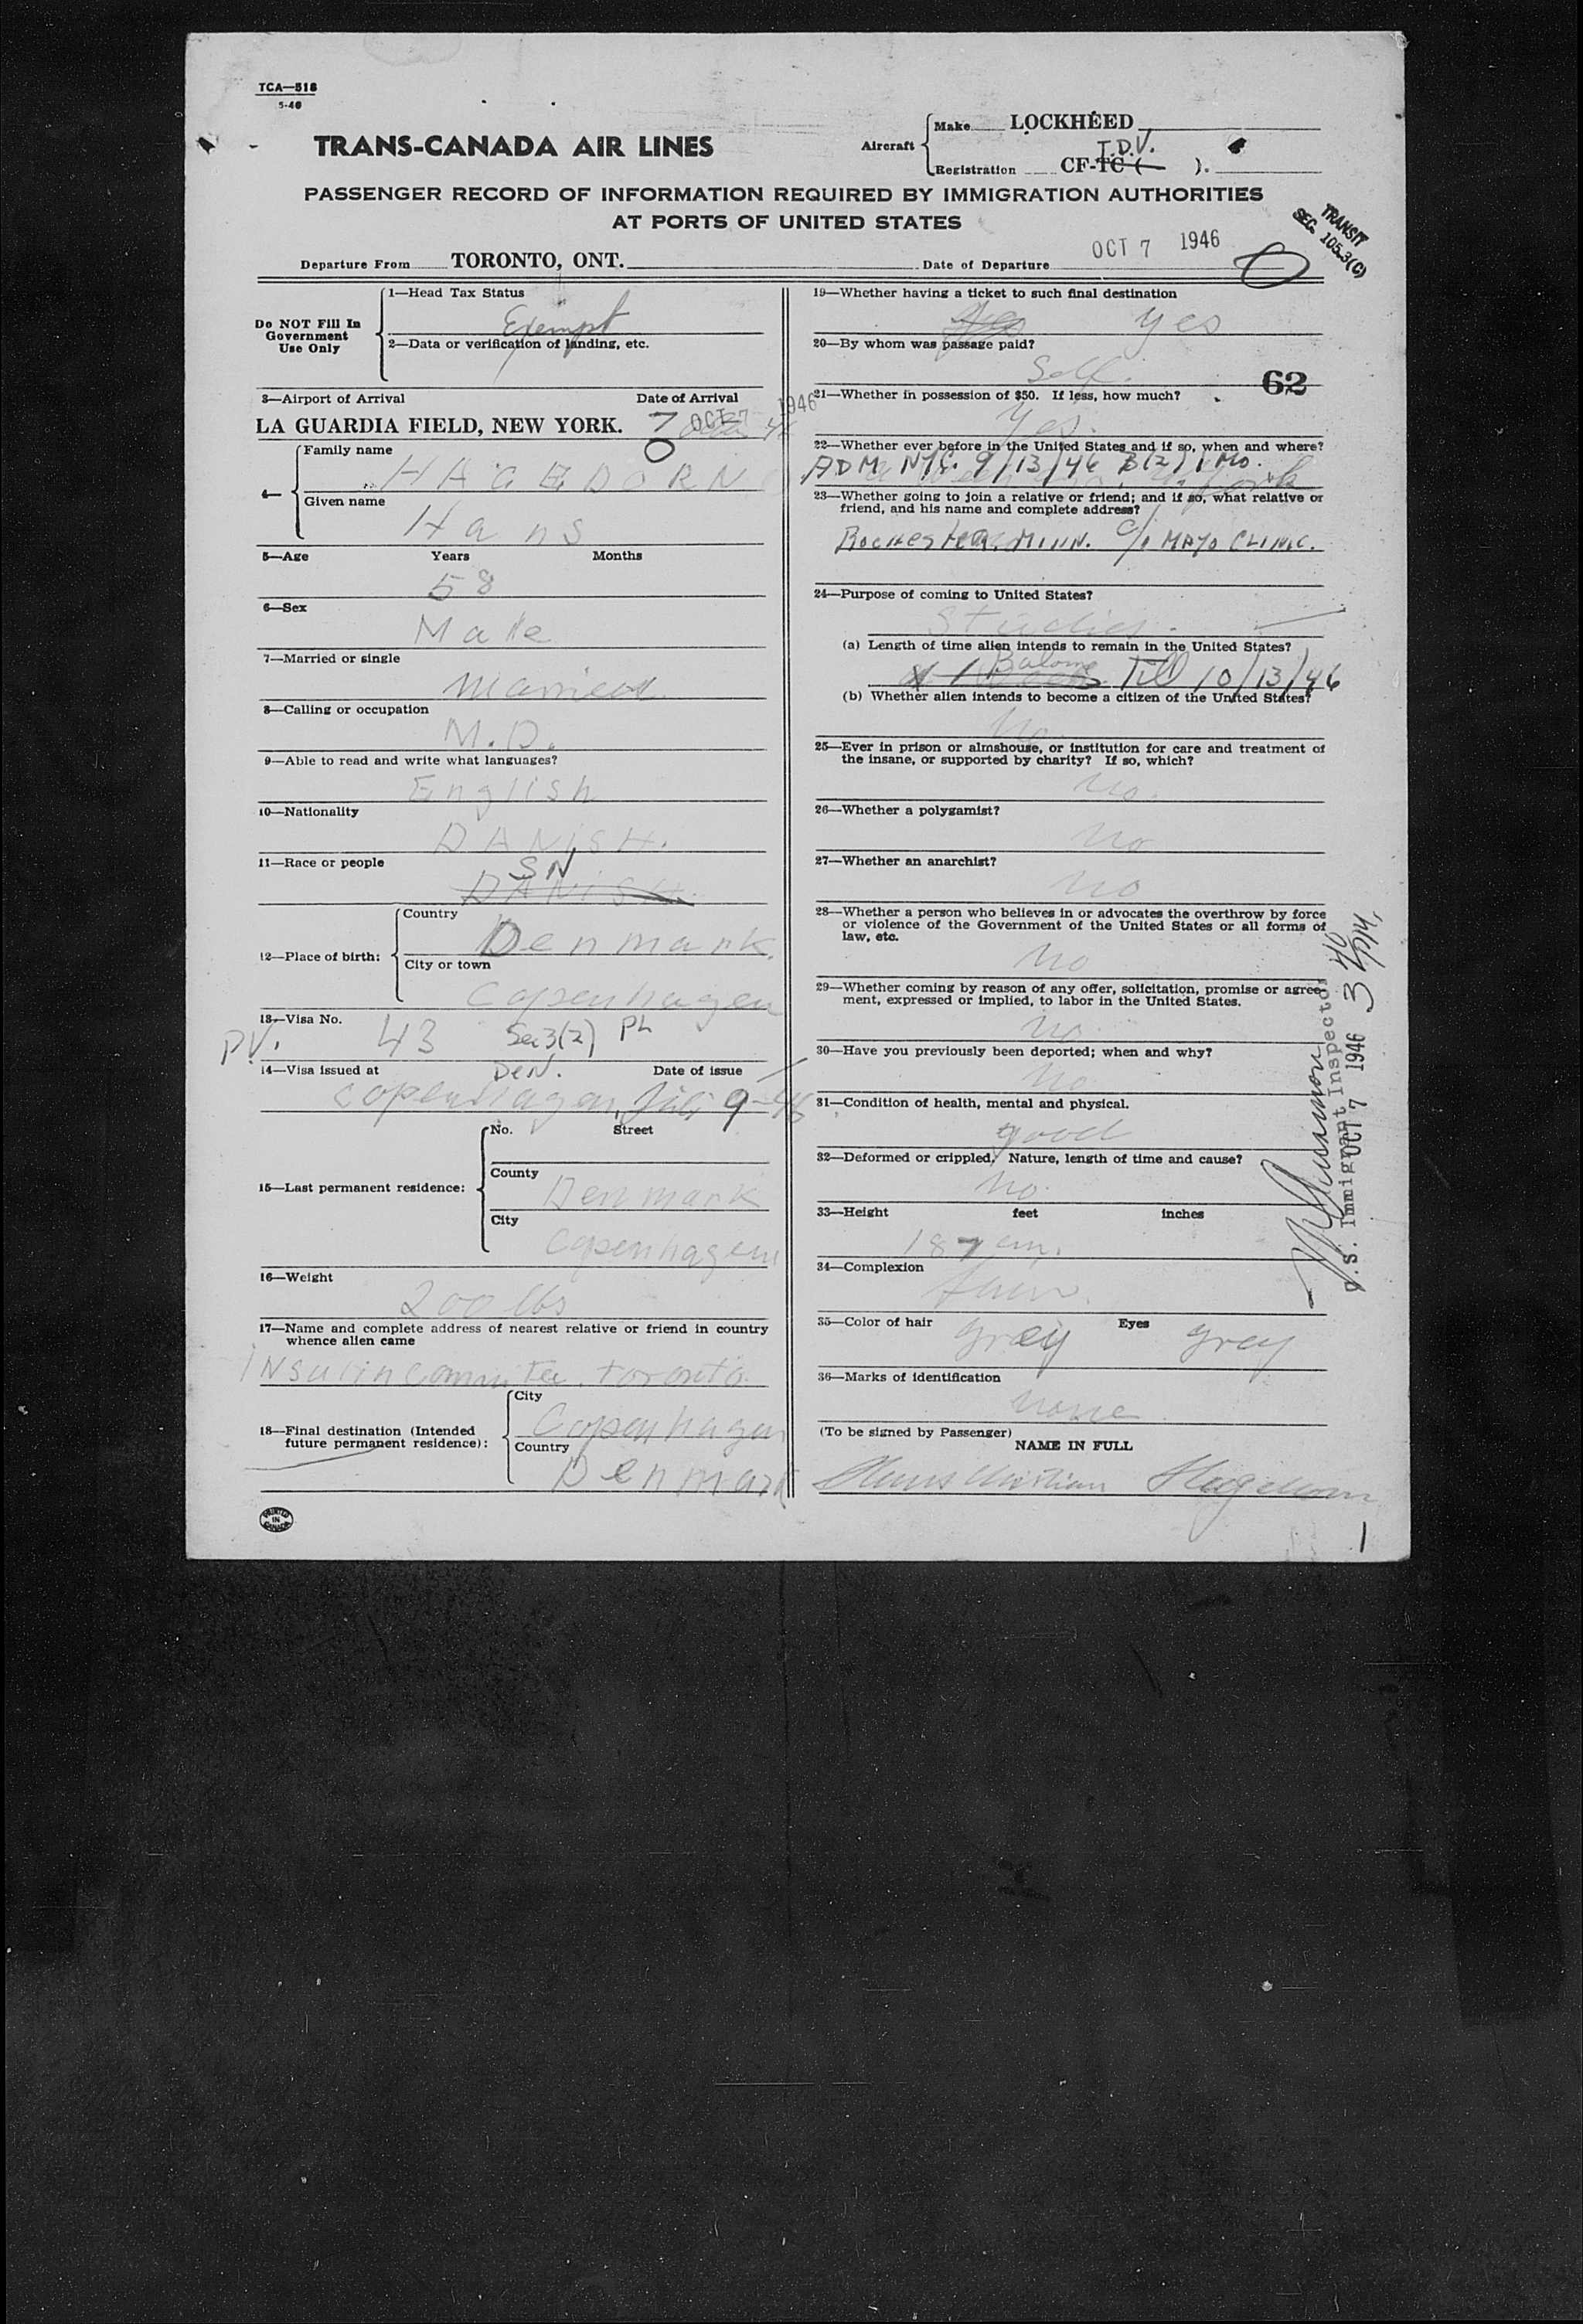 TCA—518
5-46
TRANS-CANADA AIR LINES
Aircraft
Make LOCKHEED
T.D.V.
Registration CF-TC ( ).
PASSENGER RECORD OF INFORMATION REQUIRED BY IMMIGRATION AUTHORITIES
AT PORTS OF UNITED STATES
TRANSIT
SEC. 105.3(C)
Departure From TORONTO, ONT.
Date of Departure OCT 7 1946
Do NOT Fill In
Government
Use Only
1—Head Tax Status
Exempt
2—Data or verification of landing, etc.
3—Airport of Arrival Date of Arrival
LA GUARDIA FIELD, NEW YORK. 7 OCT 7 1946
4—
Family name
HAGEDORN
Given name
Hans
5—Age Years Months
58
6—Sex
Male
7—Married or single
married
8—Calling or occupation
M.D.
9—Able to read and write what languages?
English
10—Nationality
DANISH.
11—Race or people
SN
DANISH.
12—Place of birth:
Country
Denmark
City or town
Copenhagen
13—Visa No.
P.V. 43 Sec 3(2) PL
14—Visa issued at DEN. Date of issue
Copenhagen, 9-46
15—Last permanent residence:
No. Street
County
Denmark
City
Copenhagen
16—Weight
200 lbs
17—Name and complete address of nearest relative or friend in country
whence alien came
Insulin Committee, Toronto
18—Final destination (Intended
future permanent residence):
City
Copenhagen
Country
Denmark
PRINTED
IN
CANADA
19—Whether having a ticket to such final destination
Yes yes
20—By whom was passage paid?
Self.
62
21—Whether in possession of $50. If less, how much?
Yes.
22—Whether ever before in the United States and if so, when and where?
ADM NYC. 9/13/46 B(2) 1 Mo.
23—Whether going to join a relative or friend; and if so, what relative or
friend, and his name and complete address?
Rochester, MINN. c/o MAYO CLINIC.
24—Purpose of coming to United States?
Studies.
(a) Length of time alien intends to remain in the United States?
Till 10/13/46
(b) Whether alien intends to become a citizen of the United States?
No
25—Ever in prison or almshouse, or institution for care and treatment of
the insane, or supported by charity? If so, which?
No.
26—Whether a polygamist?
No
27—Whether an anarchist?
No
28—Whether a person who believes in or advocates the overthrow by force
or violence of the Government of the United States or all forms of
law, etc.
No
29—Whether coming by reason of any offer, solicitation, promise or agree-
ment, expressed or implied, to labor in the United States.
No
30—Have you previously been deported; when and why?
No
31—Condition of health, mental and physical.
good
32—Deformed or crippled. Nature, length of time and cause?
No.
33—Height feet inches
187 cm.
34—Complexion
fair.
35—Color of hair grey Eyes grey
36—Marks of identification
none
(To be signed by Passenger)
NAME IN FULL
Hans Christian Hagedorn
1
U.S. Immigrant Inspector
OCT 7 1946
3 40 PM